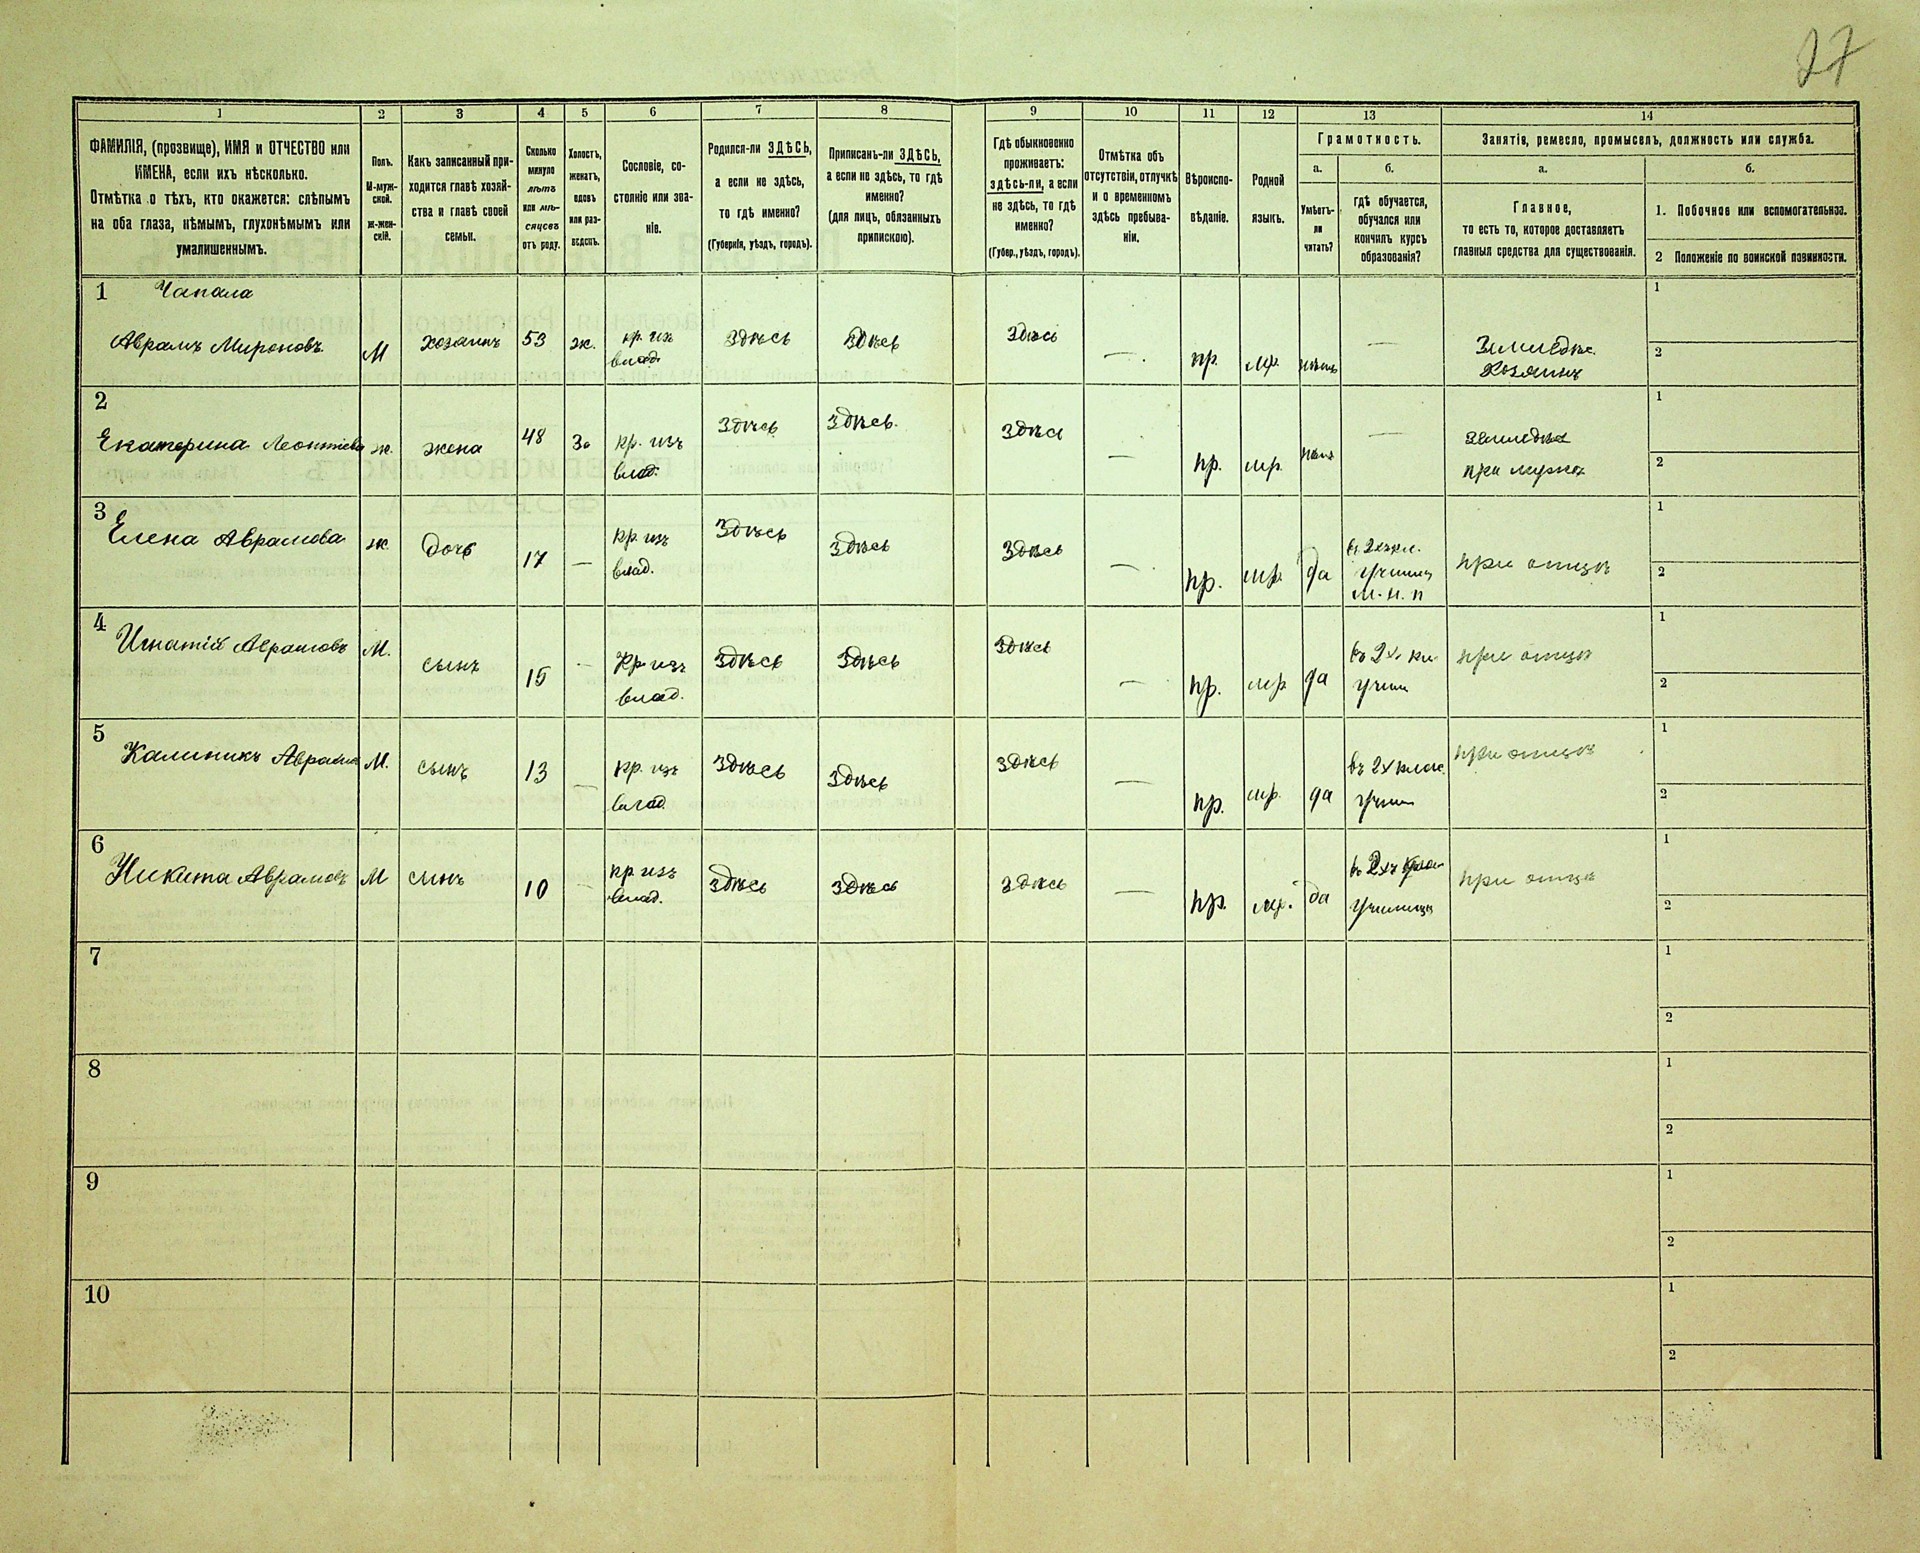 27
1
2
3
4
5
6
7
8
9
10
11
12
13
14
ФАМИЛІЯ, (прозвище), ИМЯ и ОТЧЕСТВО или
ИМЕНА, если ихъ нѣсколько.
Отмѣтка о тѣхъ, кто окажется: слѣпымъ
на оба глаза, нѣмымъ, глухонѣмымъ или
умалишеннымъ.
Полъ.
М-муж-
ской.
ж-жен-
скій.
Какъ записанный при-
ходится главѣ хозяй-
ства и главѣ своей
семьи.
Сколько
минуло
лѣтъ
или мѣ-
сяцевъ
отъ роду.
Холостъ,
женатъ,
вдовъ
или раз-
веденъ.
Сословіе, со-
стояніе или зва-
ніе.
Родился-ли ЗДѢСЬ,
а если не здѣсь,
то гдѣ именно?
(Губернія, уѣздъ, городъ).
Приписанъ-ли ЗДѢСЬ,
а если не здѣсь, то гдѣ
именно?
(для лицъ, обязанныхъ
припискою).
Гдѣ обыкновенно
проживаетъ:
здѣсь-ли, а если
не здѣсь, то гдѣ
именно?
(Губер., уѣздъ, городъ).
Отмѣтка объ
отсутствіи, отлучкѣ
и о временномъ
здѣсь пребыва-
ніи.
Вѣроиспо-
вѣданіе.
Родной
языкъ.
Грамотность.
а.
Умѣетъ-
ли
читать?
б.
гдѣ обучается,
обучался или
кончилъ курсъ
образованія?
Занятіе, ремесло, промыселъ, должность или служба.
а.
Главное,
то есть то, которое доставляетъ
главныя средства для существованія.
б.
1. Побочное или вспомогательное.
2 Положеніе по воинской повинности.
1 Чапала
Аврамъ Мироновъ М хозяинъ 53 ж. кр. изъ влад. Здѣсь Здѣсь Здѣсь — пр. мр. нѣтъ — Земледѣл. Хозяинъ 1 2
2
Екатерина Леонтіева ж. жена 48 За кр. изъ влад. Здѣсь Здѣсь. Здѣсь — пр. мр. — при мужѣ 1 2
3 Елена Аврамова ж. дочь 17 — кр. изъ влад. Здѣсь Здѣсь Здѣсь — пр. мр. да въ 2хъ кл. училищ М. Н. П при отцѣ 1 2
4 Игнатій Аврамовъ М. сынъ 15 — Кр. изъ влад. Здѣсь Здѣсь Здѣсь — пр. мр да въ 2х кл. учил при отцѣ 1 2
5 Калиникъ М. сынъ 13 — кр. изъ влад. Здѣсь Здѣсь Здѣсь — пр. мр. да въ 2х клас. учил при отцѣ 1 2
6 Никита Аврамовъ М сынъ 10 — кр. изъ влад. Здѣсь Здѣсь Здѣсь — пр. мр. да въ 2хъ училищ при отцѣ 1 2
7 1 2
8 1 2
9 1 2
10 1 2